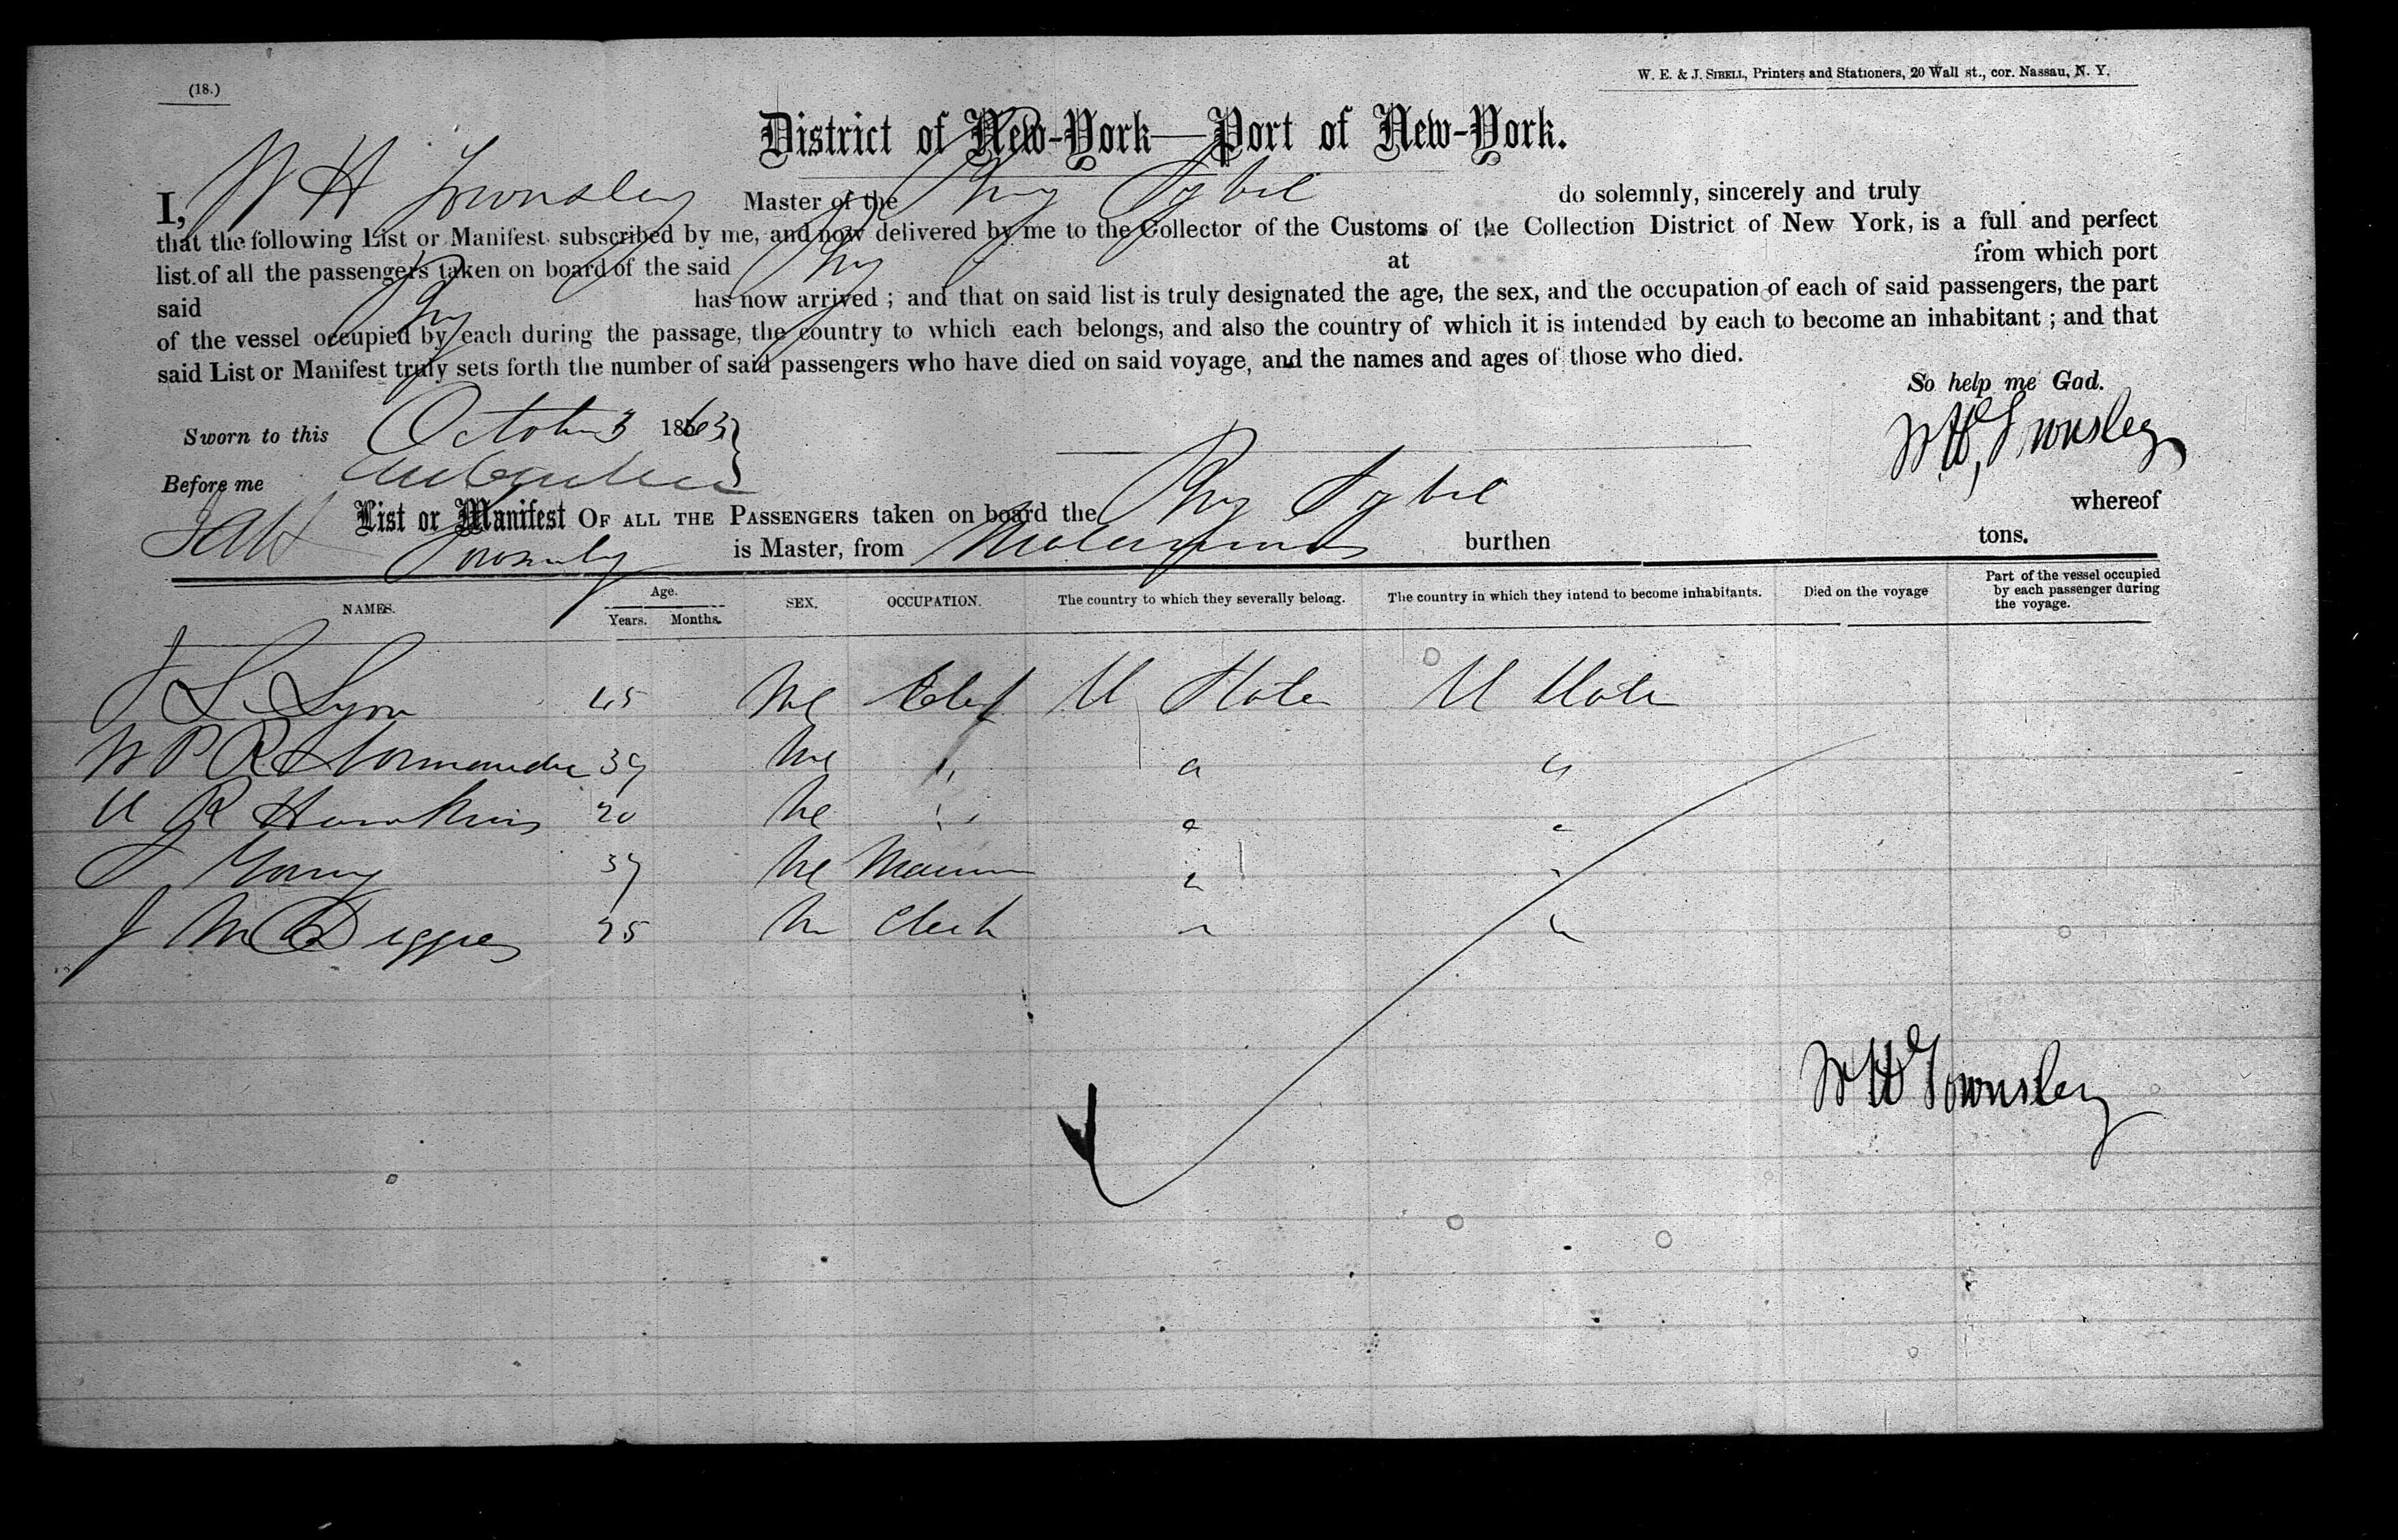 (18.)
W. E. & J. SIBELL, Printers and Stationers, 20 Wall st., cor. Nassau, N. Y.
District of New-York—Port of New-York.
I, W H Townsley Master of the Brig Sybil do solemnly, sincerely and truly
that the following List or Manifest subscribed by me, and now delivered by me to the Collector of the Customs of the Collection District of New York, is a full and perfect
list of all the passengers taken on board of the said Brig at from which port
said Brig has now arrived; and that on said list is truly designated the age, the sex, and the occupation of each of said passengers, the part
of the vessel occupied by each during the passage, the country to which each belongs, and also the country of which it is intended by each to become an inhabitant; and that
said List or Manifest truly sets forth the number of said passengers who have died on said voyage, and the names and ages of those who died.
So help me God.
Sworn to this October 3 1863
W H Townsley
Before me
List or Manifest OF ALL THE PASSENGERS taken on board the Brig Sybil whereof
Townsley is Master, from burthen tons.
NAMES. Age. Years. Months. SEX. OCCUPATION. The country to which they severally belong. The country in which they intend to become inhabitants. Died on the voyage Part of the vessel occupied by each passenger during the voyage.
J S Lyon 45 U State U State
W P R 39 " "
R Hawkins 20 " "
J Young 39 " "
J M Diggies 25 M Clerk " "
W H Townsley